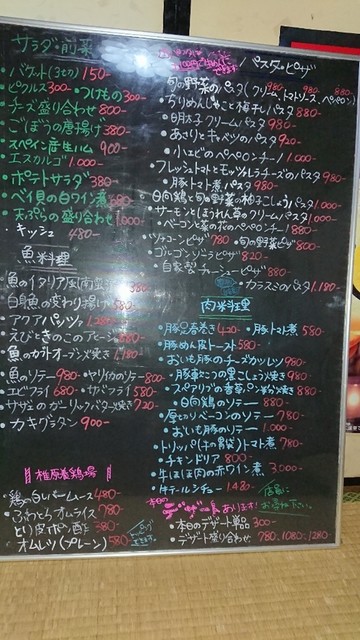 サラダ・前菜
・バケット(3ヶ) 150-
・ピクルス300- ・つけもの300-
・チーズ盛り合わせ 800-
・ごぼうの唐揚げ 380-
・スペイン産生ハム 900-
・エスカルゴ 1.000-
・ポテトサラダ 380-
・ベイ貝の白ワイン煮 680-
・天ぷらの盛り合わせ 1.000-
・キッシュ 480-
魚料理
・魚のイタリア風南蛮漬 380-
・白身魚の変わり揚げ 580-
・アクアパッツァ
・えびときのこのアヒージョ 880-
・魚のカダイフ オーブン焼き 1.180-
・魚のソテー 980- ・ヤリイカのソテー 800-
・エビフライ 680- ・サバフライ 580-
・サザエのガーリックバター焼き 720-
・カキグラタン 900-
椎原養鶏場
・鶏の白レバームース 480-
・ふわとろオムライス 780-
・とり皮ポン酢 380-
・オムレツ(プレーン) 580-
パスタ・ピザ
・旬の野菜のパスタ(クリーム980、トマトソース980、ペペロン880)
・ちりめんじゃこと梅干しパスタ 880-
・明太子クリームパスタ 980-
・あさりとキャベツのパスタ 920-
・小エビのペペロンチーノ 1.000-
・フレッシュトマトとモッツァレラチーズのパスタ 980-
・豚トマト煮パスタ 980-
・日向鶏と旬の野菜の柚子こしょうパスタ 1.000-
・サーモンとほうれん草のクリームパスタ 1.000-
・ベーコンと菜の花のペペロンチーノ 880-
・ツナコーンピザ 780- ・旬の野菜ピザ 800-
・ゴルゴンゾーラピザ 820-
・自家製チャーシューピザ 880-
・カラスミのパスタ 1.180
肉料理
・豚足春巻き 420- ・豚トマト煮 580-
・豚めん皮トースト 580-
・おいも豚のチーズカツレツ 980-
・豚東の黒こしょう焼き 980-
・スペアリブの香草パン粉焼き 880-
・日向鶏のソテー 880-
・厚切りベーコンのソテー 780-
・おいも豚のソテー 1.000-
・トリッパ(牛の胃袋)トマト煮 780-
・チキンドリア 800-
・牛ほほ肉の赤ワイン煮 3.000-
・牛テールシチュー 1.480-
本日の
デザートあります!
・本日のデザート単品 300-
・デザート盛り合わせ 780.1080.1280-